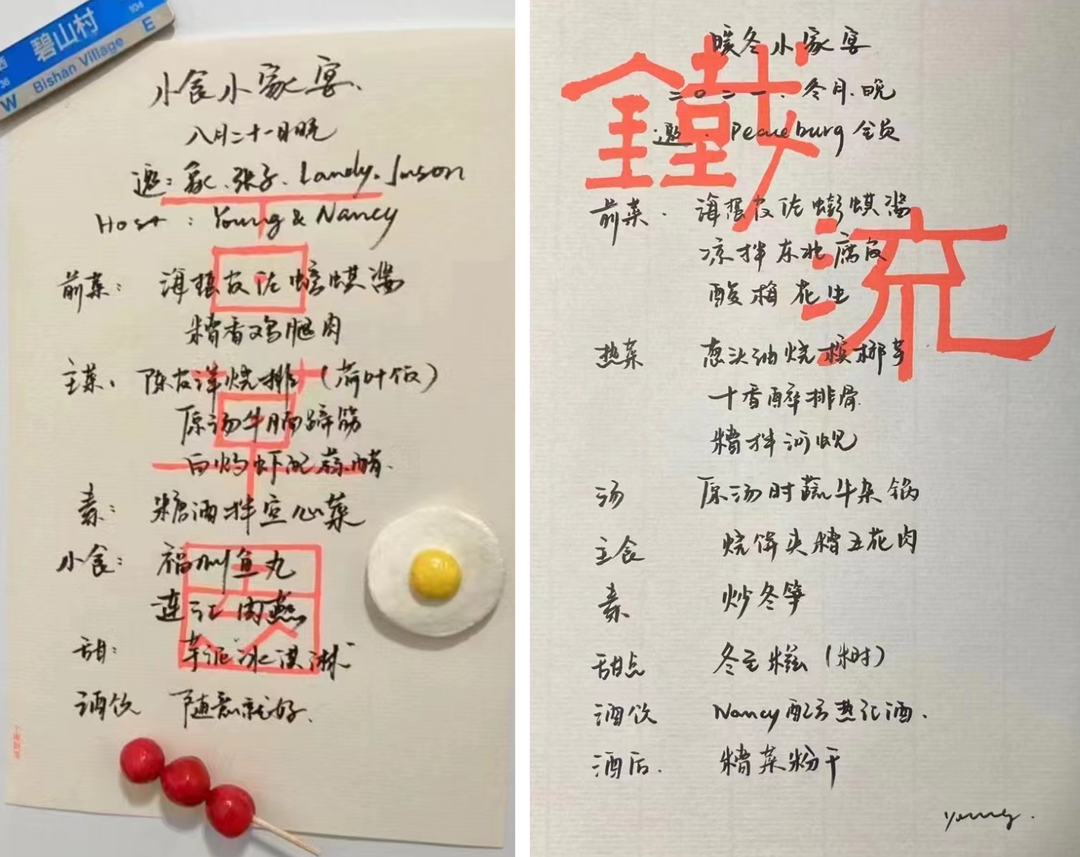 碧山村
Bishan Village
W
E
104
小食小家宴.
八月二十一日晚
邀: 张子. Landy. Juson
Host : Young & Nancy
前菜: 海蜇皮佐蟛蜞酱
糟香鸡腿肉
主菜. 陈皮洋烧排(荷叶饭)
原汤牛腩蹄筋
白灼虾配蒜蓉.
素: 糖酒拌空心菜
小食: 福州鱼丸
连江肉燕
甜: 芋泥冰淇淋
酒饮 随意就好.
暖冬小家宴
二〇二一.冬月.晚
邀. Peaceburg 全员
鐵
流
前菜. 海蜇皮佐蟛蜞酱
凉拌东北腐皮
酸梅花生
热菜 葱头油烧槟榔芋
十香醉排骨
糟拌河蚬
汤 原汤时蔬牛杂锅
主食 烧饼夹糟五花肉
素 炒冬笋
甜点 冬至糍(米时)
酒饮 Nancy配方热红酒.
酒后. 糟菜粉干
Young.